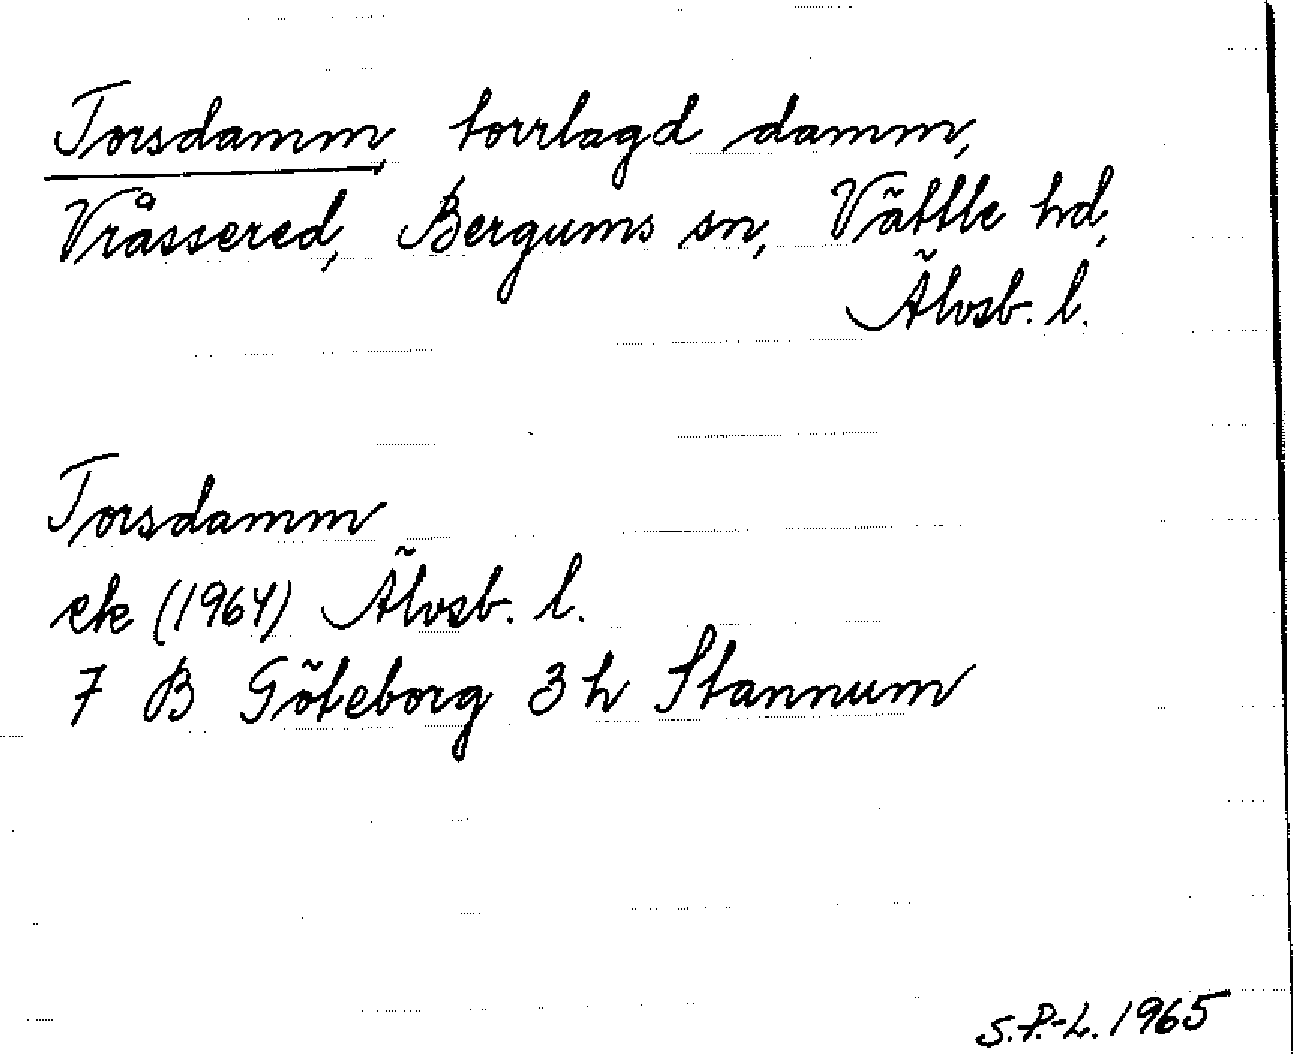 Torsdamm torrlagd damm,
Vråssered, Bergums sn, Vättle hd,
Älvsb. l.
Torsdamm
ek (1964) Älvsb. l.
7 B Göteborg 3 h Stannum
S.P.-L. 1965